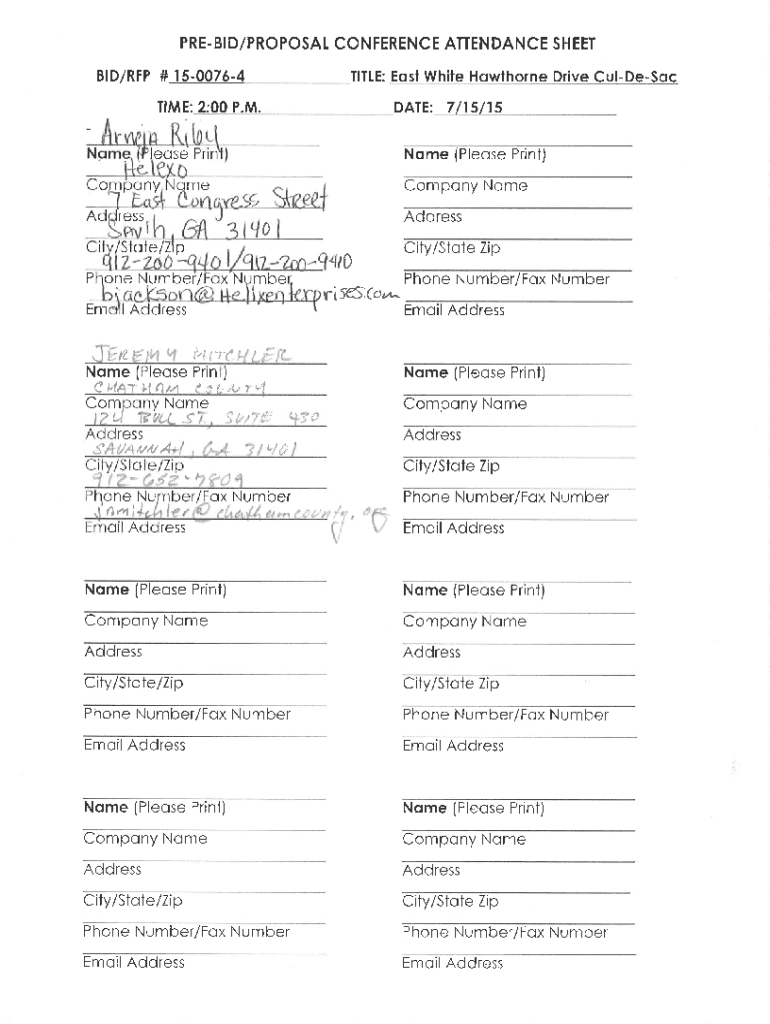 PRE-BID/PROPOSAL CONFERENCE ATTENDANCE SHEET
BID/RFP # 15-0076-4 TITLE: East White Hawthorne Drive Cul-De-Sac
TIME: 2:00 P.M. DATE: 7/15/15
Name (Please Print) Name (Please Print)
Company Name Company Name
7 East Congress Street
Address Address
Savh, GA 31401
City/State/Zip City/State Zip
912-200-9401/912-200-9410
Phone Number/Fax Number Phone Number/Fax Number
bjackson@Helixenterprises.com
Email Address Email Address
JEREMY MITCHLER
Name (Please Print) Name (Please Print)
CHATHAM COUNTY
Company Name Company Name
124 BULL ST., SUITE 430
Address Address
SAVANNAH, GA 31401
City/State/Zip City/State Zip
912-652-7809
Phone Number/Fax Number Phone Number/Fax Number
jamitchler@chathamcounty.org
Email Address Email Address
Name (Please Print) Name (Please Print)
Company Name Company Name
Address Address
City/State/Zip City/State Zip
Phone Number/Fax Number Phone Number/Fax Number
Email Address Email Address
Name (Please Print) Name (Please Print)
Company Name Company Name
Address Address
City/State/Zip City/State Zip
Phone Number/Fax Number Phone Number/Fax Number
Email Address Email Address